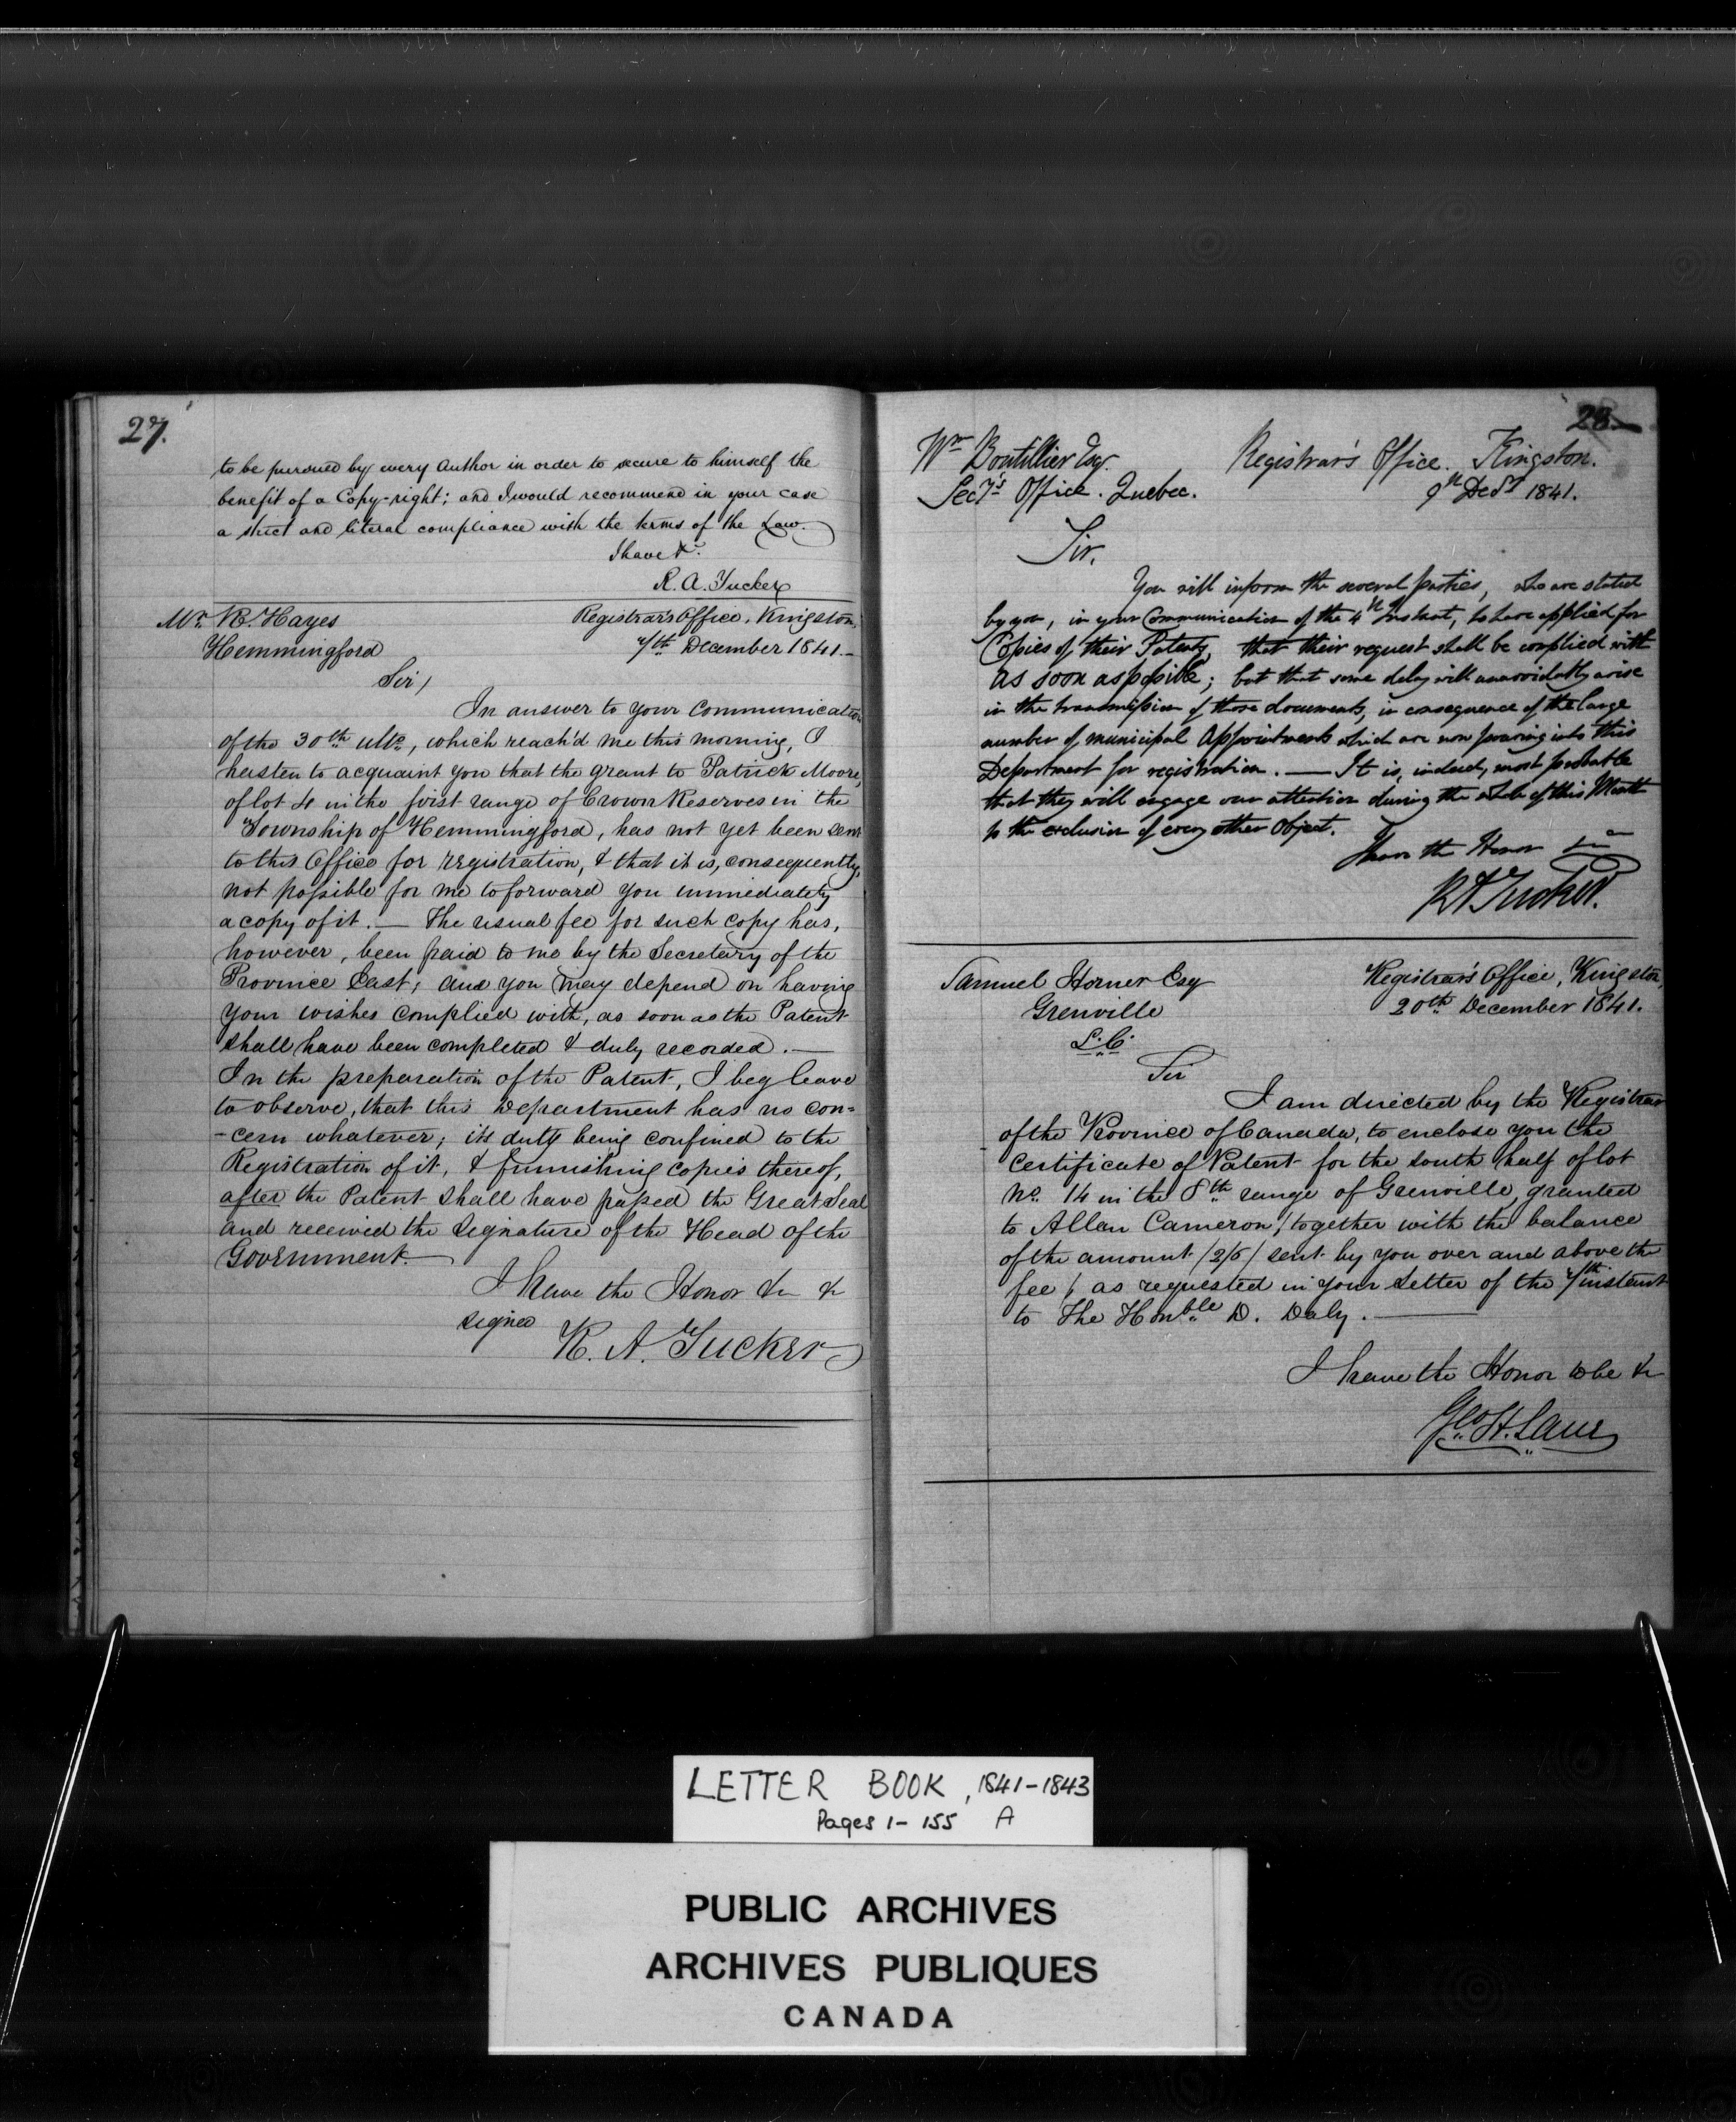 27.
to be pursued by every Author in order to secure to himself the
benefit of a Copy-right; and I would recommend in your case
a strict and literal compliance with the terms of the Law.
I have &c.
R. A. Tucker
Mr. R. Hayes
Hemmingford
Registrar's Office, Kingston,
7th December 1841.—
Sir,
In answer to your Communication
of the 30th ulto, which reach'd me this morning, I
hasten to acquaint you that the grant to Patrick Moore,
of lot 4 in the first range of Crown Reserves in the
Township of Hemmingford, has not yet been sent
to this Office for registration, & that it is, consequently,
not possible for me to forward you immediately
a copy of it. — The usual fee for such copy has,
however, been paid to me by the Secretary of the
Province East; and you may depend on having
your wishes complied with, as soon as the Patent
shall have been completed & duly recorded. —
In the preparation of the Patent, I beg leave
to observe, that this Department has no con=
-cern whatever; its duty being confined to the
Registration of it, & furnishing copies thereof,
after the Patent shall have passed the Great Seal
and received the Signature of the Head of the
Government. —
I have the Honor &c &c
signed
R. A. Tucker
28
Wm Boutillier Esqr.
Secy's Office. Quebec.
Registrar's Office. Kingston.
9th Decr 1841.
Sir,
You will inform the several parties, who are stated
by you, in your Communication of the 4th Instant, to have applied for
Copies of their Patents, that their request shall be complied with
as soon as possible; but that some delay will unavoidably arise
in the transmission of those documents, in consequence of the large
number of municipal Appointments which are now pouring into this
Department for registration. — It is, indeed, most probable
that they will engage our attention during the whole of this Month
to the exclusion of every other Object.
I have the Honor &c
R A Tucker.
Samuel Horner Esq
Grenville
L.C.
Registrar's Office, Kingston,
20th December 1841.
Sir
I am directed by the Registrar
of the Province of Canada, to enclose you the
Certificate of Patent for the south half of lot
No. 14 in the 8th range of Grenville, granted
to Allan Cameron, together with the balance
of the amount /2/6/ sent by you over and above the
fee, as requested in your Letter of the 7th instant
to The Honble D. Daly. —
I have the Honor to be &c
Geo. H. Lane
LETTER BOOK, 1841-1843
Pages 1-155 A
PUBLIC ARCHIVES
ARCHIVES PUBLIQUES
CANADA